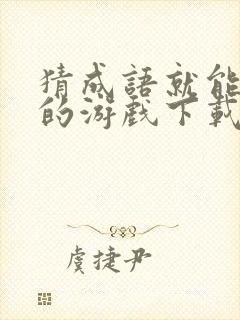 猜成語就能
的游戲下載
虞捷尹